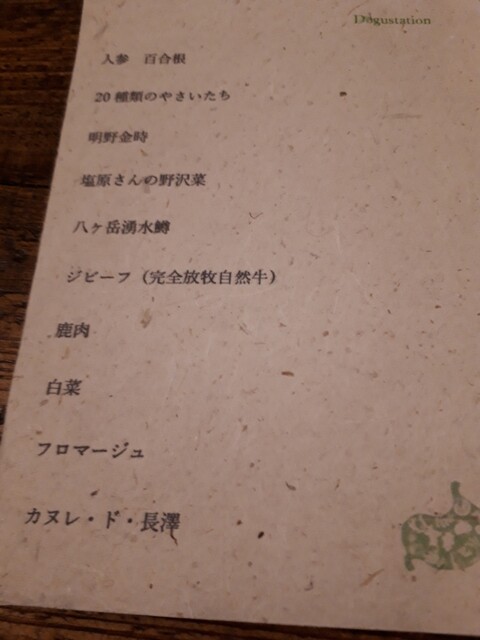 Dégustation
人参　百合根
20種類のやさいたち
明野金時
塩原さんの野沢菜
八ヶ岳湧水鱒
ジビーフ（完全放牧自然牛）
鹿肉
白菜
フロマージュ
カヌレ・ド・長澤